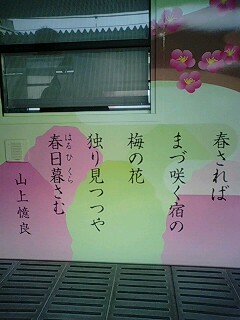 春されば
まづ咲く宿の
梅の花
独り見つつや
春日暮さむ
はるひくら
山上憶良